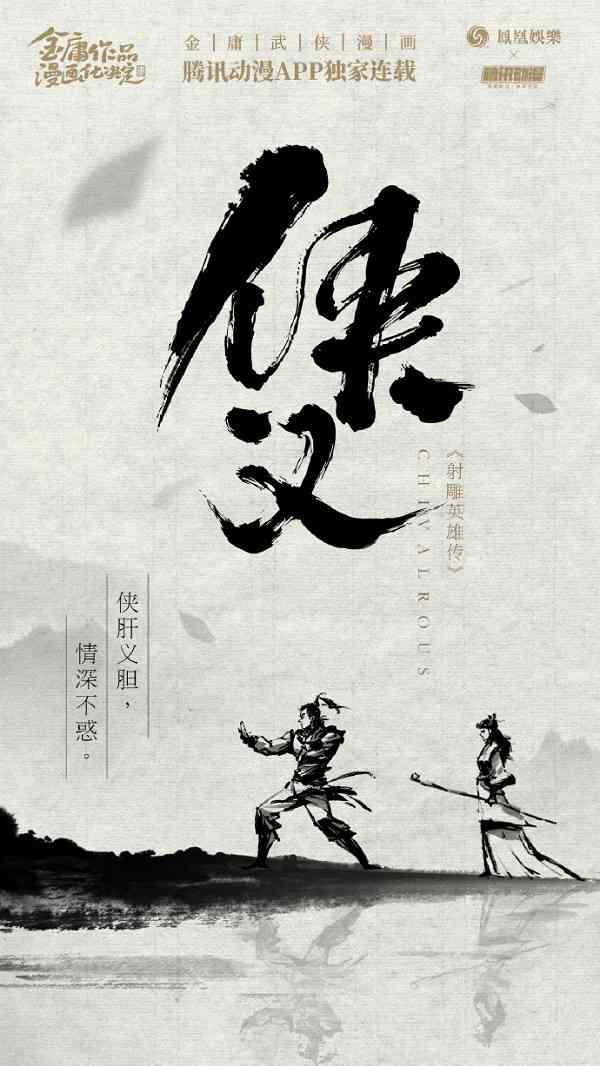 金庸作品
漫画化决定
金庸武侠漫画
腾讯动漫APP独家连载
鳳凰娛樂
×
腾讯动漫
侠义
《射雕英雄传》
CHIVALROUS
侠肝义胆，
情深不惑。